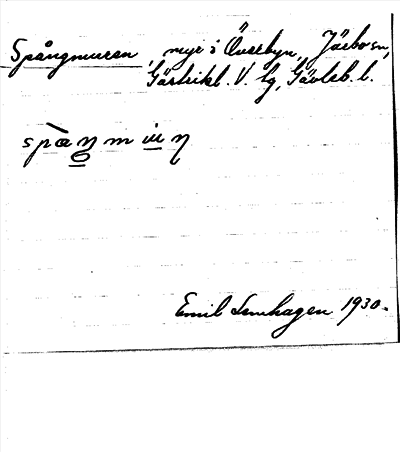 Spångmuren, myr i Överbyn, Järbo sn,
Gästrikl. V. tg, Gävleb. l.
spàŋmuɳ
Emil Lenhagen 1930.